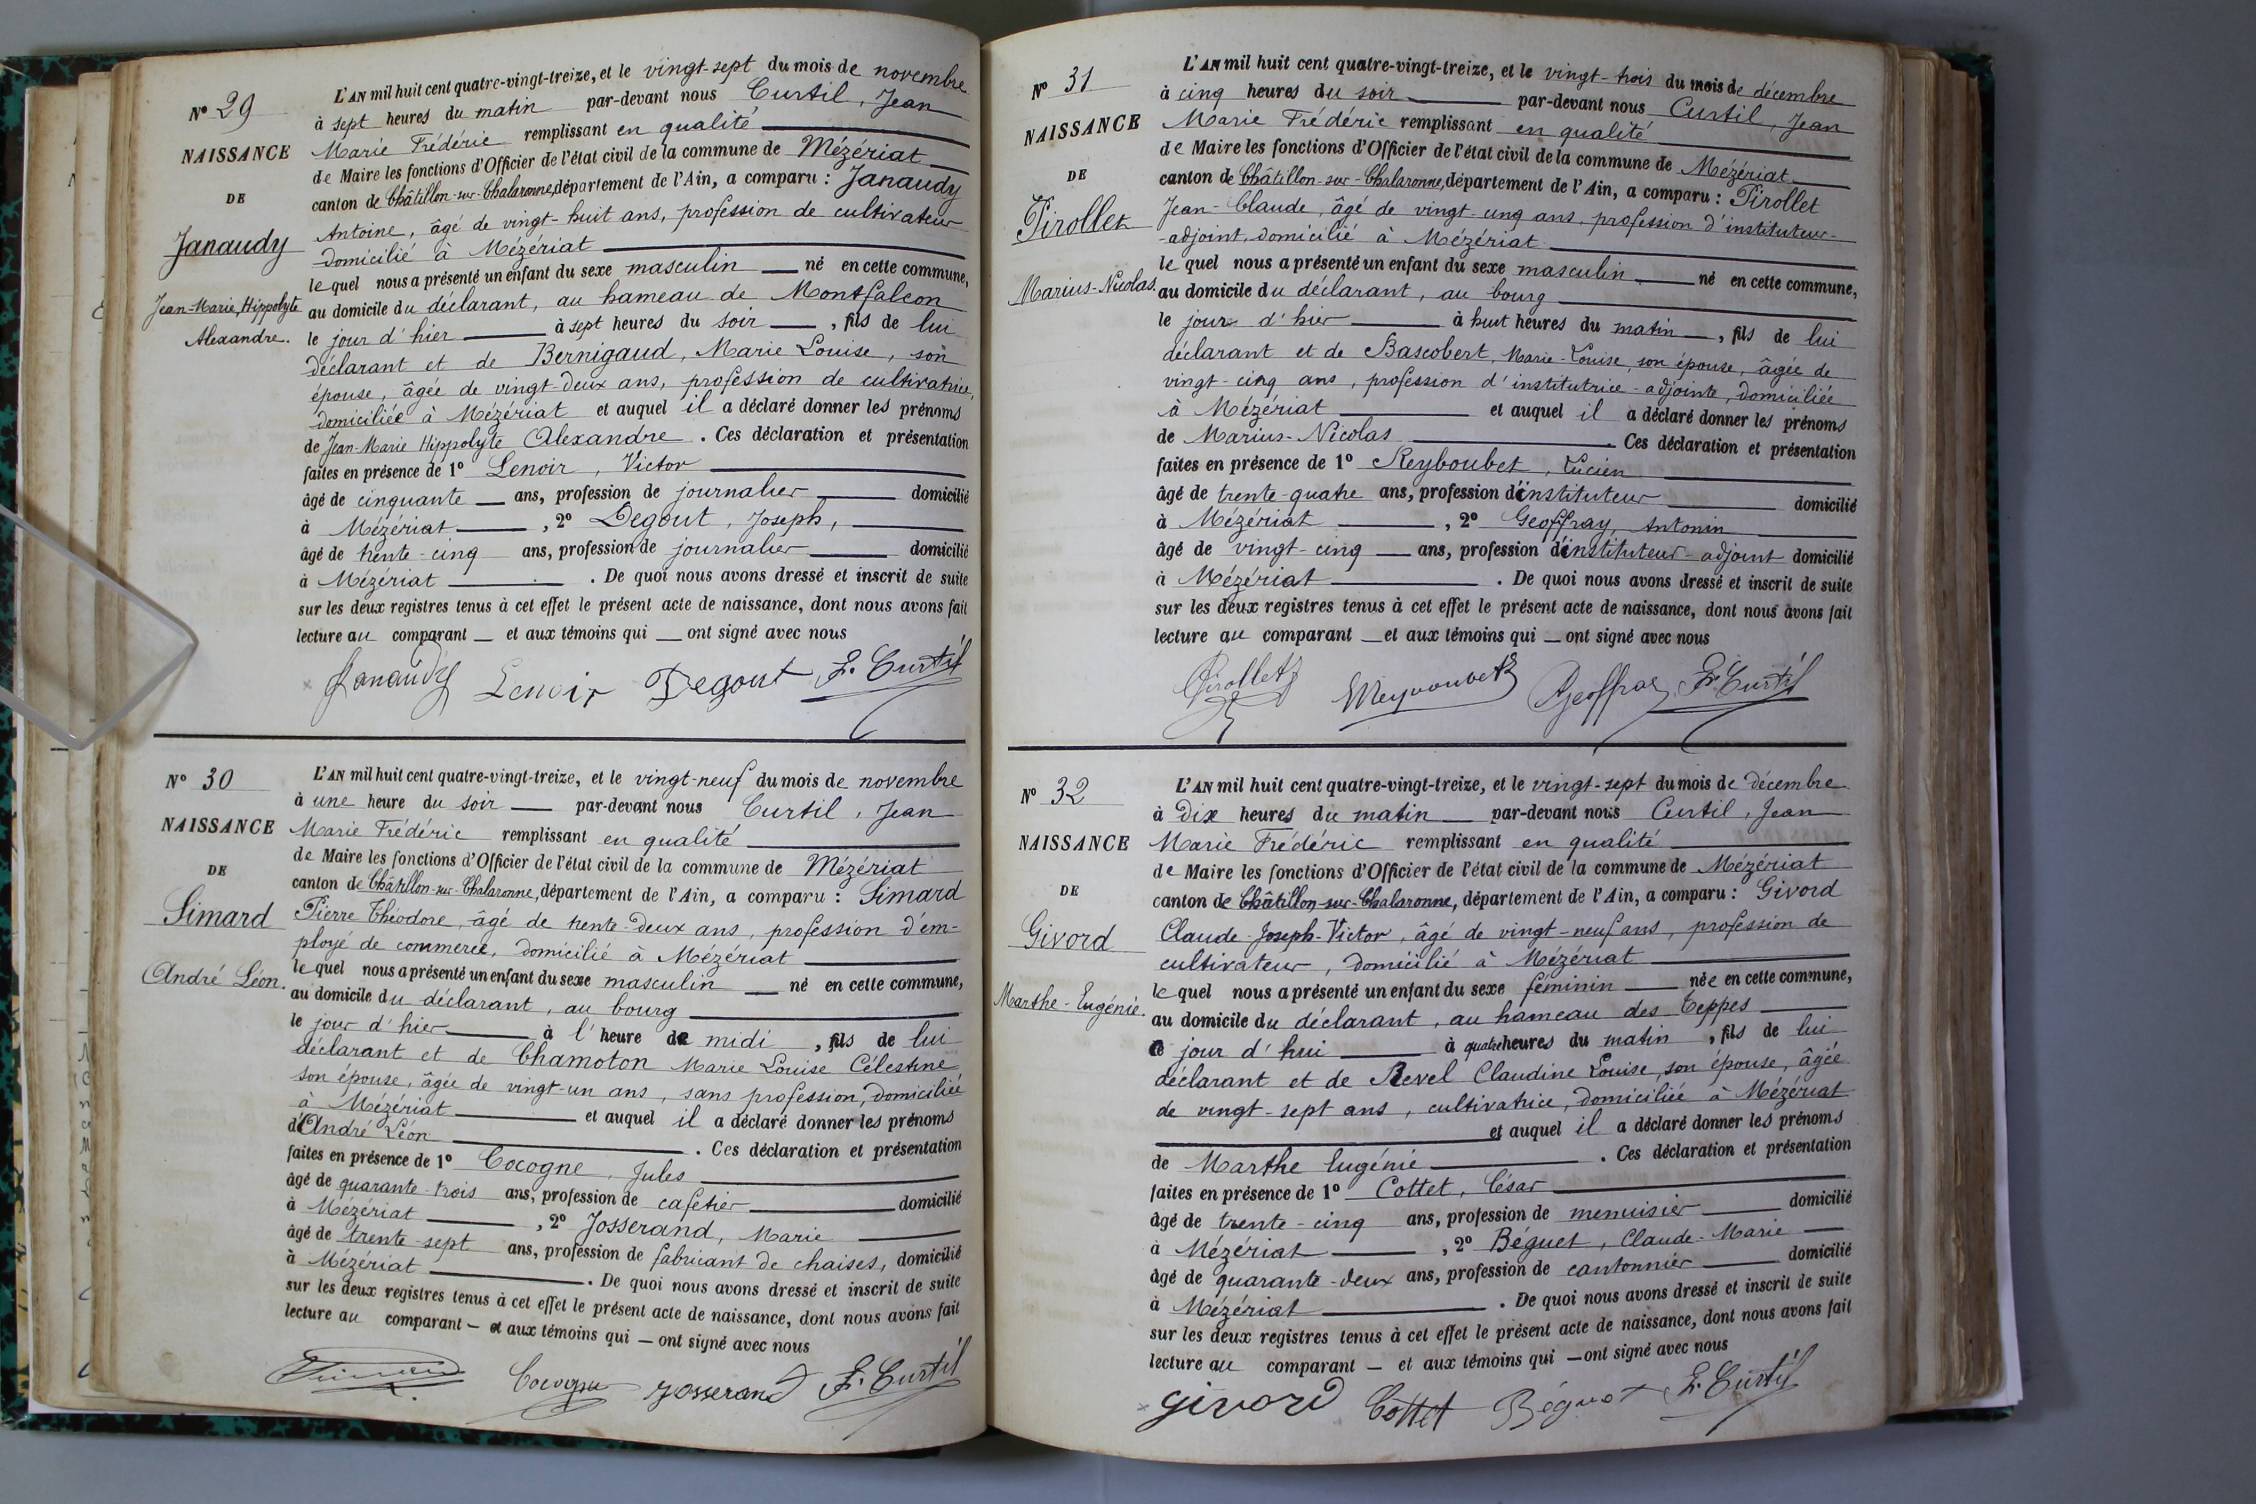 N° 29
NAISSANCE
DE
Janaudy
Jean-Marie, Hippolyte
Alexandre.
L'AN mil huit cent quatre-vingt-treize, et le vingt-sept du mois de novembre
à sept heures du matin par-devant nous Curtil, Jean
Marie Frédéric remplissant en qualité
de Maire les fonctions d'Officier de l'état civil de la commune de Mézériat
canton de Châtillon-sur-Chalaronne, département de l'Ain, a comparu : Janaudy
Antoine, âgé de vingt-huit ans, profession de cultivateur
domicilié à Mézériat
lequel nous a présenté un enfant du sexe masculin né en cette commune,
au domicile du déclarant, au hameau de Montfalcon
le jour d'hier à sept heures du soir , fils de lui
déclarant et de Bernigaud, Marie Louise, son
épouse, âgée de vingt-deux ans, profession de cultivatrice,
domiciliée à Mézériat et auquel il a déclaré donner les prénoms
de Jean-Marie Hippolyte Alexandre. Ces déclaration et présentation
faites en présence de 1° Lenoir, Victor
âgé de cinquante ans, profession de journalier domicilié
à Mézériat , 2° Degout, Joseph,
âgé de trente-cinq ans, profession de journalier domicilié
à Mézériat . De quoi nous avons dressé et inscrit de suite
sur les deux registres tenus à cet effet le présent acte de naissance, dont nous avons fait
lecture au comparant — et aux témoins qui — ont signé avec nous
Janaudy Lenoir Degout F. Curtil
N° 30
NAISSANCE
DE
Simard
André Léon.
L'AN mil huit cent quatre-vingt-treize, et le vingt-neuf du mois de novembre
à une heure du soir par-devant nous Curtil, Jean
Marie Frédéric remplissant en qualité
de Maire les fonctions d'Officier de l'état civil de la commune de Mézériat
canton de Châtillon-sur-Chalaronne, département de l'Ain, a comparu : Simard
Pierre Théodore, âgé de trente-deux ans, profession d'em-
ployé de commerce, domicilié à Mézériat
lequel nous a présenté un enfant du sexe masculin né en cette commune,
au domicile du déclarant, au bourg
le jour d'hier à l'heure de midi , fils de lui
déclarant et de Chamoton Marie Louise Célestine
son épouse, âgée de vingt-un ans, sans profession, domiciliée
à Mézériat et auquel il a déclaré donner les prénoms
d'André Léon . Ces déclaration et présentation
faites en présence de 1° Cocogne, Jules
âgé de quarante-trois ans, profession de cafetier domicilié
à Mézériat , 2° Josserand, Marie
âgé de trente-sept ans, profession de fabricant de chaises, domicilié
à Mézériat . De quoi nous avons dressé et inscrit de suite
sur les deux registres tenus à cet effet le présent acte de naissance, dont nous avons fait
lecture au comparant — et aux témoins qui — ont signé avec nous
Simard Cocogne Josserand F. Curtil
N° 31
NAISSANCE
DE
Pirollet
Marius-Nicolas.
L'AN mil huit cent quatre-vingt-treize, et le vingt-trois du mois de décembre
à cinq heures du soir par-devant nous Curtil, Jean
Marie Frédéric remplissant en qualité
de Maire les fonctions d'Officier de l'état civil de la commune de Mézériat
canton de Châtillon-sur-Chalaronne, département de l'Ain, a comparu : Pirollet
Jean-Claude, âgé de vingt-cinq ans, profession d'instituteur-
-adjoint, domicilié à Mézériat
lequel nous a présenté un enfant du sexe masculin né en cette commune,
au domicile du déclarant, au bourg
le jour d'hier à huit heures du matin , fils de lui
déclarant et de Bascobert, Marie-Louise, son épouse, âgée de
vingt-cinq ans, profession d'institutrice-adjointe, domiciliée
à Mézériat et auquel il a déclaré donner les prénoms
de Marius-Nicolas . Ces déclaration et présentation
faites en présence de 1° Reyboubet, Lucien
âgé de trente-quatre ans, profession d'instituteur domicilié
à Mézériat , 2° Geoffray, Antonin
âgé de vingt-cinq ans, profession d'instituteur-adjoint domicilié
à Mézériat . De quoi nous avons dressé et inscrit de suite
sur les deux registres tenus à cet effet le présent acte de naissance, dont nous avons fait
lecture au comparant — et aux témoins qui — ont signé avec nous
Pirollet Geoffray F. Curtil
N° 32
NAISSANCE
DE
Givord
Marthe-Eugénie.
L'AN mil huit cent quatre-vingt-treize, et le vingt-sept du mois de décembre
à dix heures du matin par-devant nous Curtil, Jean
Marie Frédéric remplissant en qualité
de Maire les fonctions d'Officier de l'état civil de la commune de Mézériat
canton de Châtillon-sur-Chalaronne, département de l'Ain, a comparu : Givord
Claude-Joseph-Victor, âgé de vingt-neuf ans, profession de
cultivateur, domicilié à Mézériat
lequel nous a présenté un enfant du sexe féminin née en cette commune,
au domicile du déclarant, au hameau des Teppes
ce jour d'hui à quatre heures du matin , fils de lui
déclarant et de Revel Claudine Louise, son épouse, âgée
de vingt-sept ans, cultivatrice, domiciliée à Mézériat
et auquel il a déclaré donner les prénoms
de Marthe Eugénie . Ces déclaration et présentation
faites en présence de 1° Cottet, César
âgé de trente-cinq ans, profession de menuisier domicilié
à Mézériat , 2° Béguet, Claude-Marie
âgé de quarante-deux ans, profession de cantonnier domicilié
à Mézériat . De quoi nous avons dressé et inscrit de suite
sur les deux registres tenus à cet effet le présent acte de naissance, dont nous avons fait
lecture au comparant — et aux témoins qui — ont signé avec nous
Givord Cottet Béguet F. Curtil